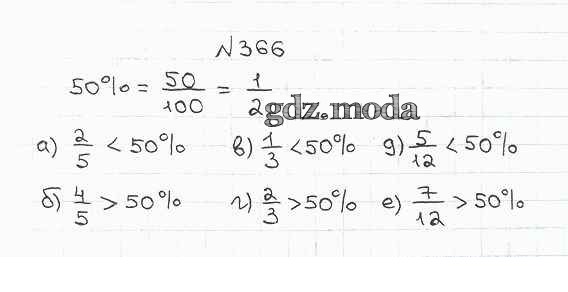 №366
50% = 50/100 = 1/2
gdz.moda
а) 2/5 < 50% в) 1/3 < 50% д) 5/12 < 50%
б) 4/5 > 50% г) 2/3 > 50% е) 7/12 > 50%